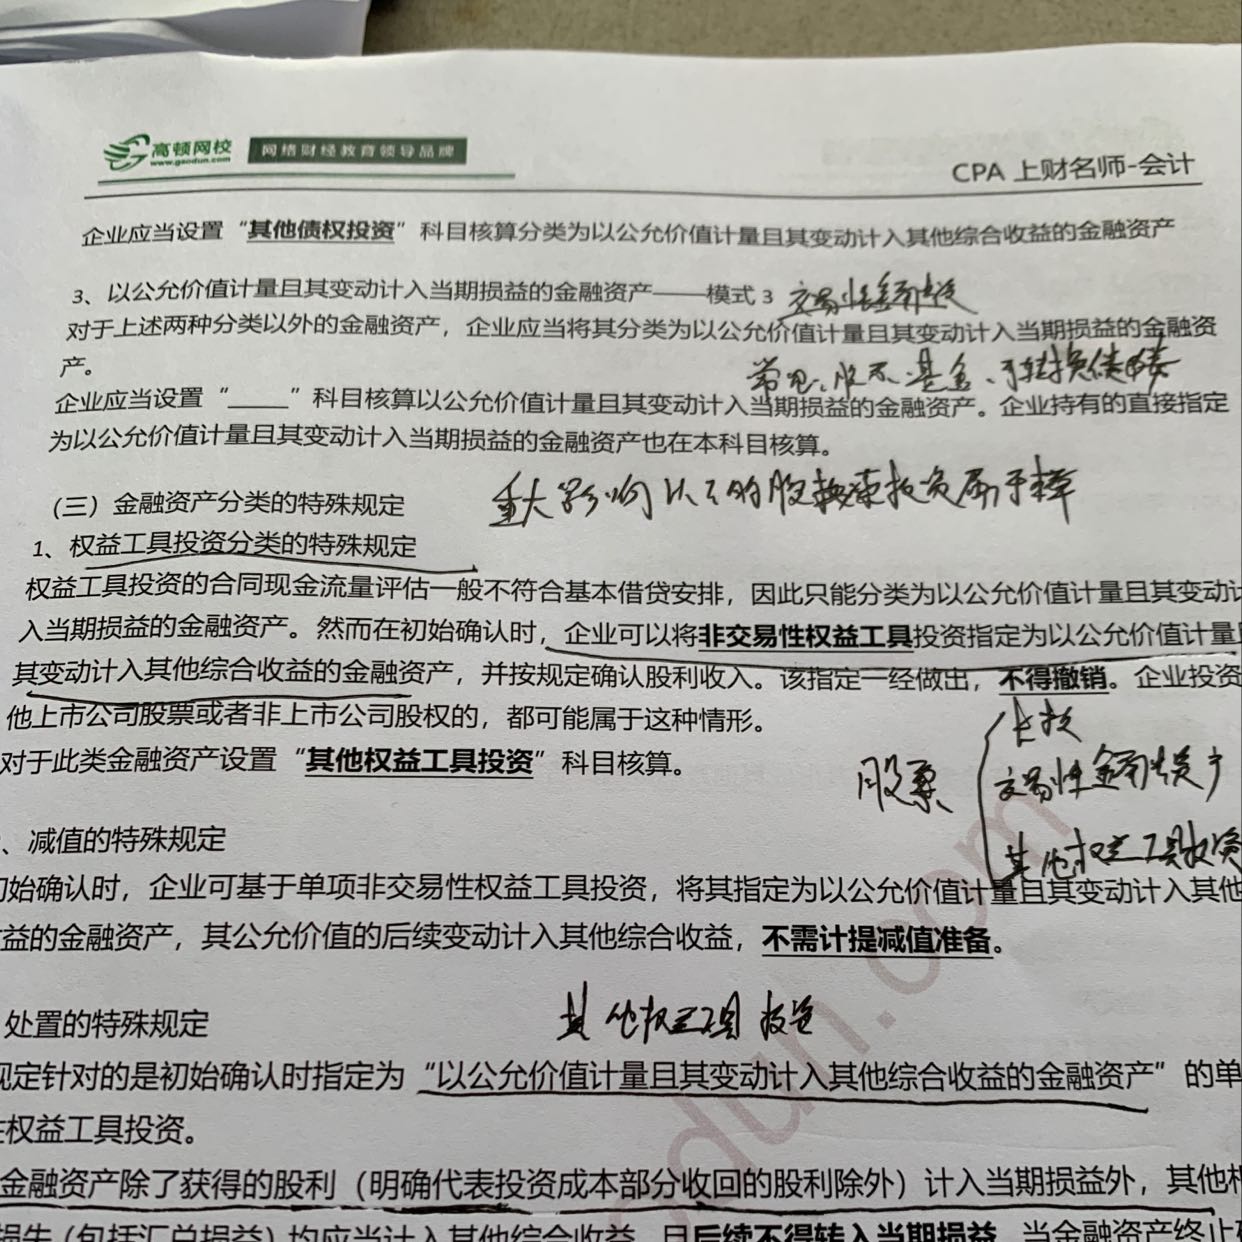 高顿网校
www.gaodun.com
网络财经教育领导品牌
CPA 上财名师-会计
企业应当设置“其他债权投资”科目核算分类为以公允价值计量且其变动计入其他综合收益的金融资产
3、以公允价值计量且其变动计入当期损益的金融资产——模式 3 交易性金融资产
对于上述两种分类以外的金融资产，企业应当将其分类为以公允价值计量且其变动计入当期损益的金融资
产。
常见、股票、基金、可转换债券
企业应当设置“____”科目核算以公允价值计量且其变动计入当期损益的金融资产。企业持有的直接指定
为以公允价值计量且其变动计入当期损益的金融资产也在本科目核算。
重大影响以下的股权投资属于
（三）金融资产分类的特殊规定
1、权益工具投资分类的特殊规定
权益工具投资的合同现金流量评估一般不符合基本借贷安排，因此只能分类为以公允价值计量且其变动计
入当期损益的金融资产。然而在初始确认时，企业可以将非交易性权益工具投资指定为以公允价值计量且
其变动计入其他综合收益的金融资产，并按规定确认股利收入。该指定一经做出，不得撤销。企业投资
他上市公司股票或者非上市公司股权的，都可能属于这种情形。
对于此类金融资产设置“其他权益工具投资”科目核算。
股票
长投
交易性金融资产
其他权益工具投资
、减值的特殊规定
初始确认时，企业可基于单项非交易性权益工具投资，将其指定为以公允价值计量且其变动计入其他
益的金融资产，其公允价值的后续变动计入其他综合收益，不需计提减值准备。
其他权益工具投资
处置的特殊规定
规定针对的是初始确认时指定为“以公允价值计量且其变动计入其他综合收益的金融资产”的单
权益工具投资。
金融资产除了获得的股利（明确代表投资成本部分收回的股利除外）计入当期损益外，其他相
损失（包括汇兑损益）均应当计入其他综合收益，且后续不得转入当期损益。当金融资产终止确